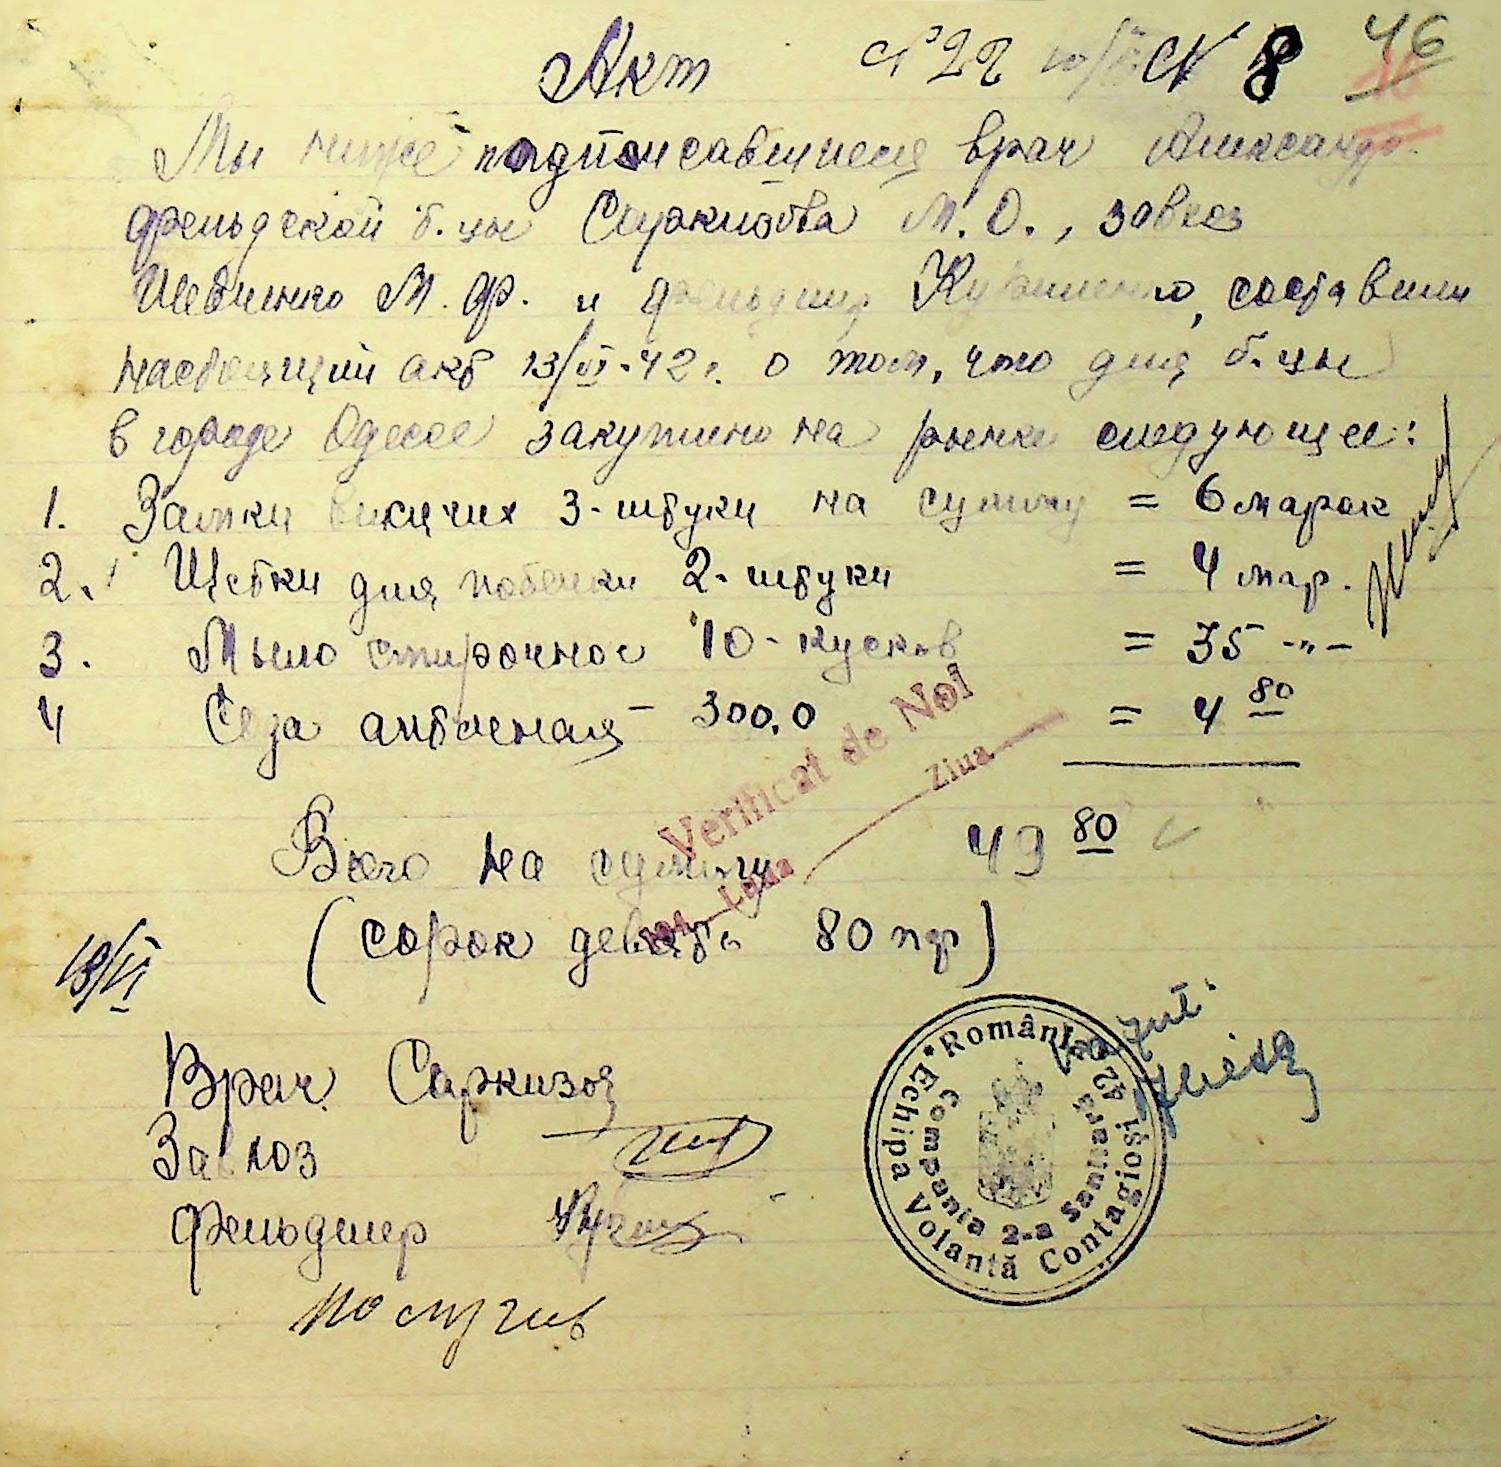 Акт № 22 № 8 46
Мы ниже подписавшиеся врач Александр
фельдской б-цы Саркизова М.О., завхоз
Шевченко М.Ф. и фельдшер, составили
настоящий акт 13/VI-42 г. о том, что для б-цы
в городе Одессе закуплено на рынке следующее:
1. Замки висячих 3-штуки на сумму = 6 марок
2. Щетки для побелки 2-штуки = 4 мар.
3. Мыло стирочное 10-кусков = 35 -"-
4 Сода аптечная - 300,0 = 4 80
Verificat de Noi
Ziua
194 Luna
Всего на сумму 49 80
(сорок девять 80 пф)
13/VI
Врач Саркизов
Завхоз
Фельдшер
получив
România
Echipa Volantă Contagioși 42
Compania 2-a Sanitară